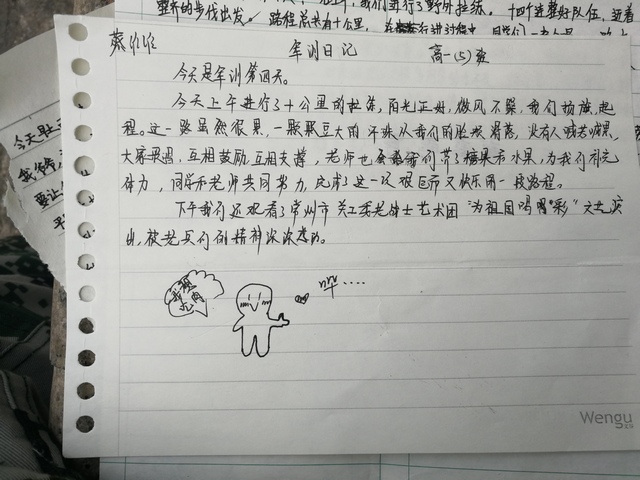 整齐的步伐出发。路程总共有十公里,
我们进行了野外拉练。十四个连整好队伍,迈着
今天肚
要让
军训日记
高一(5)班
今天是军训第四天。
今天上午进行了十公里的拉练,阳光正好,微风不燥,我们扬旗起
程。这一路虽然很累,一颗颗豆大的汗珠从我们的脸颊滑落,没有人喊苦喊累,
大家互相鼓励,互相支撑,老师也给我们带了糖果和水果,为我们补充
体力,同学和老师共同努力,完成了这一次艰巨而又快乐的一段路程。
下午我们还观看了常州市关工委老战士艺术团“为祖国喝彩”文艺演
出,被老兵们的精神深深感动。
哔....
Wengu